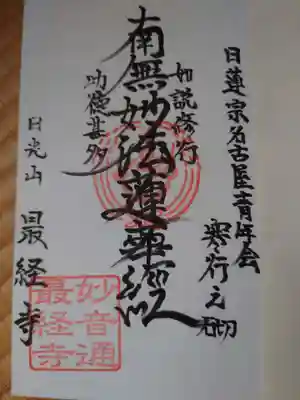 日蓮宗名古屋青年会
寒行之砌
如説修行
南無妙法蓮華經
功徳甚多
日光山
最経寺
妙音通
最経寺